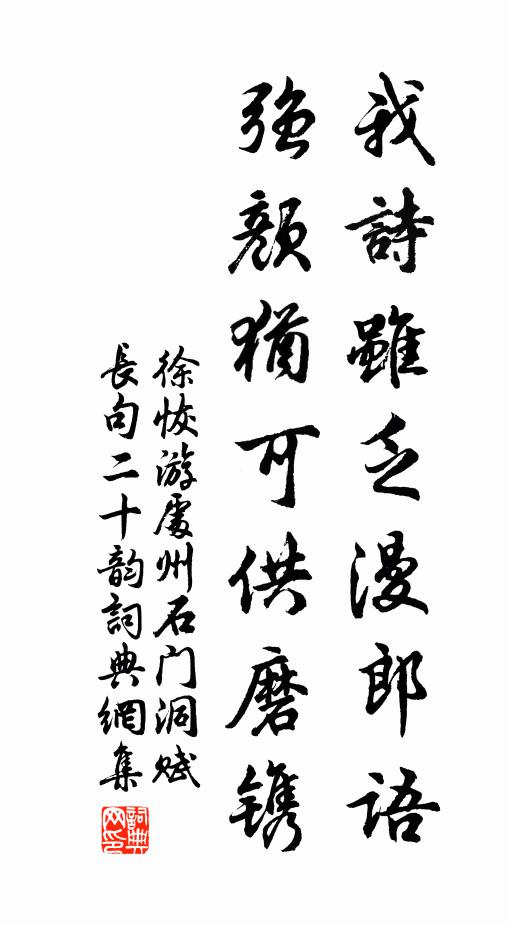 我詩雖乏漫郎語
强顔猶可供磨鎸
徐恢游處州石门洞賦
長句二十韵詞典網集
詞典
网印